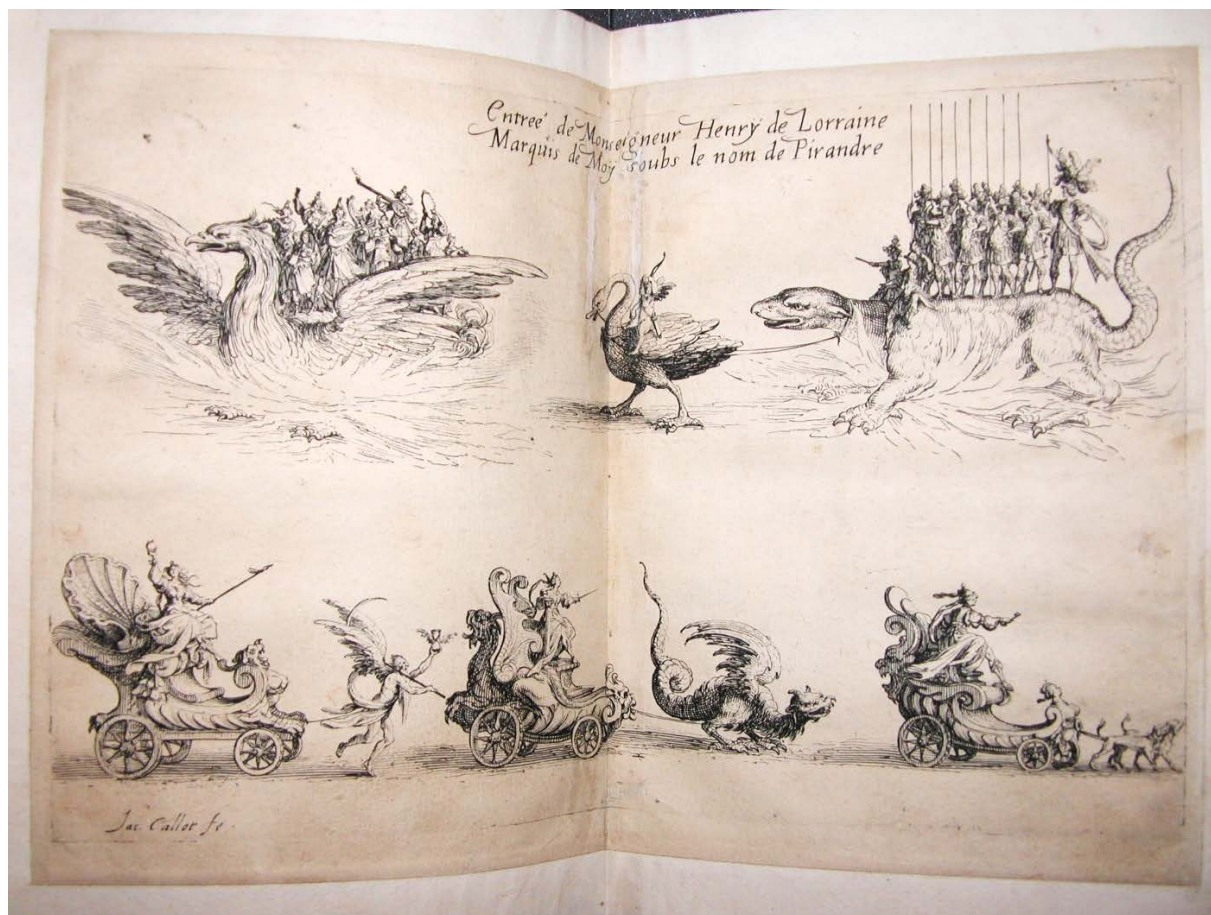 Entreé de Monseigneur Henrÿ de Lorraine
Marquis de Moÿ soubs le nom de Pirandre
Jac. Callot fe